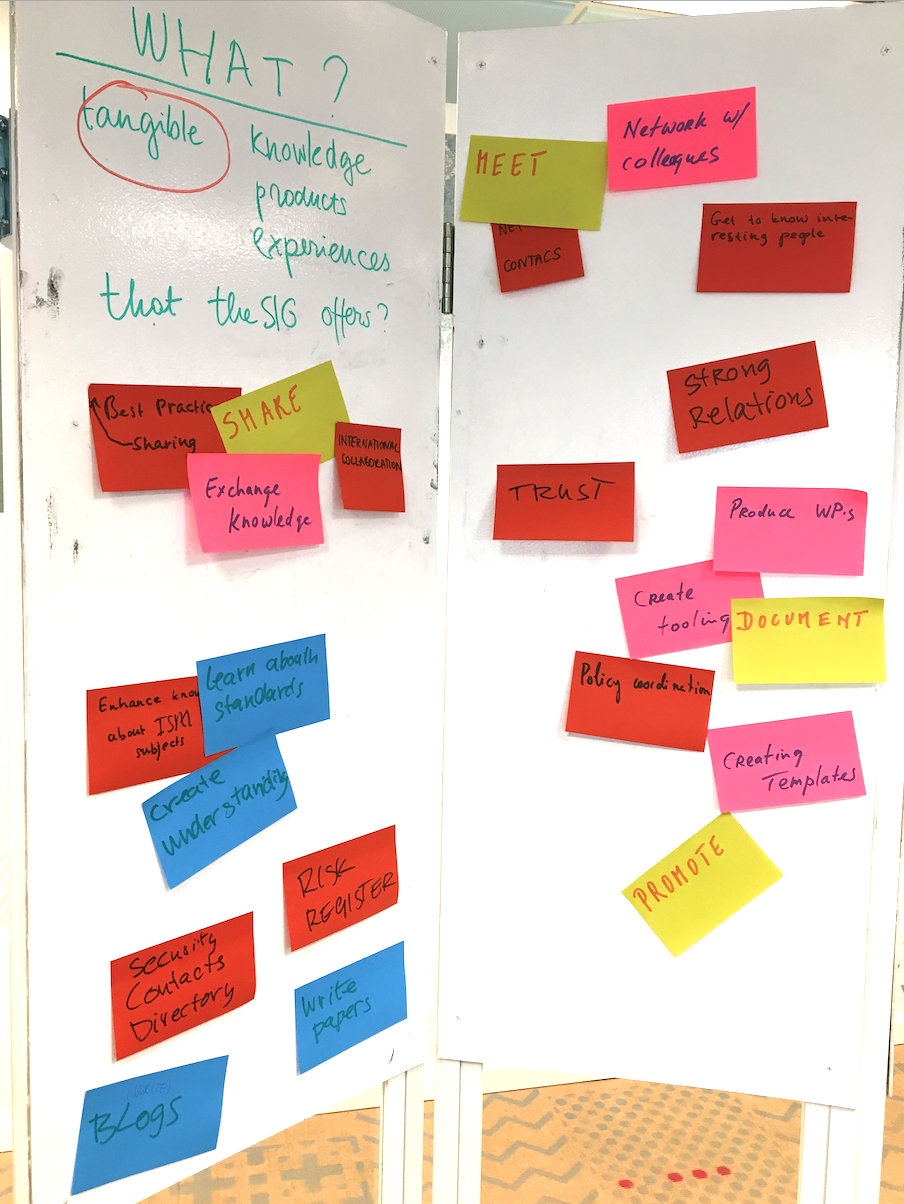 WHAT?
tangible
knowledge
products
experiences
that the SIG offers?
Best Practic
sharing
SHARE
INTERNATIONAL
COLLABORATION
Exchange
Knowledge
Enhance know
about ISM
subjects
Learn about
standards
Create
understanding
RISK
REGISTER
Security
Contacts
Directory
Write
papers
(WRITE)
BLOGS
MEET
Network w/
colleagues
NET
CONTACS
Get to know inte-
resting people
STRONG
Relations
TRUST
Produce WP's
Create
tooling
DOCUMENT
Policy coordination
Creating
Templates
PROMOTE